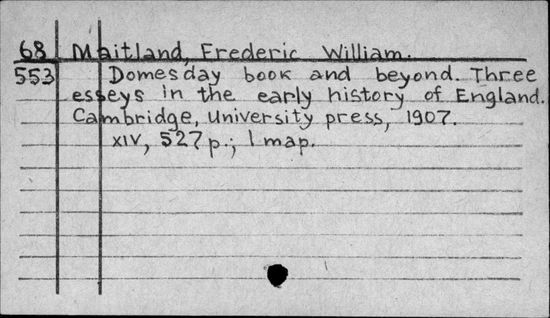 68 Maitland, Frederic William.
553 Domesday book and beyond. Three
esseys in the early history of England.
Cambridge, University press, 1907.
XIV, 527 p.; 1 map.